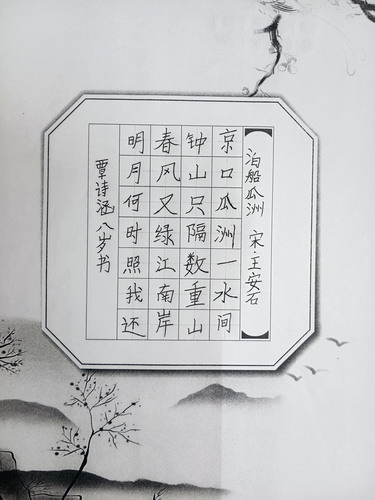 泊船瓜洲 宋·王安石
京口瓜洲一水间
钟山只隔数重山
春风又绿江南岸
明月何时照我还
覃诗涵八岁书